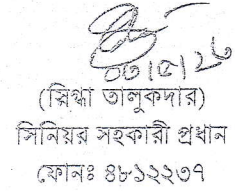 ০৩/৫/২৬
(স্নিগ্ধা তালুকদার)
সিনিয়র সহকারী প্রধান
ফোনঃ ৪৮১২২৩৭